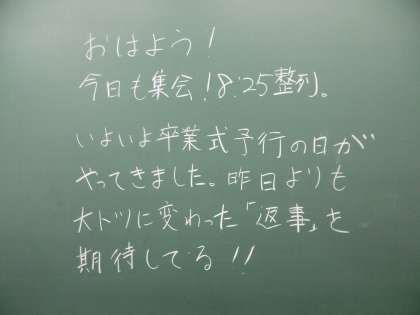 おはよう!
今日も集会!8:25整列。
いよいよ卒業式予行の日が
やってきました。昨日よりも
大ドツに変わった「返事」を
期待してる!!